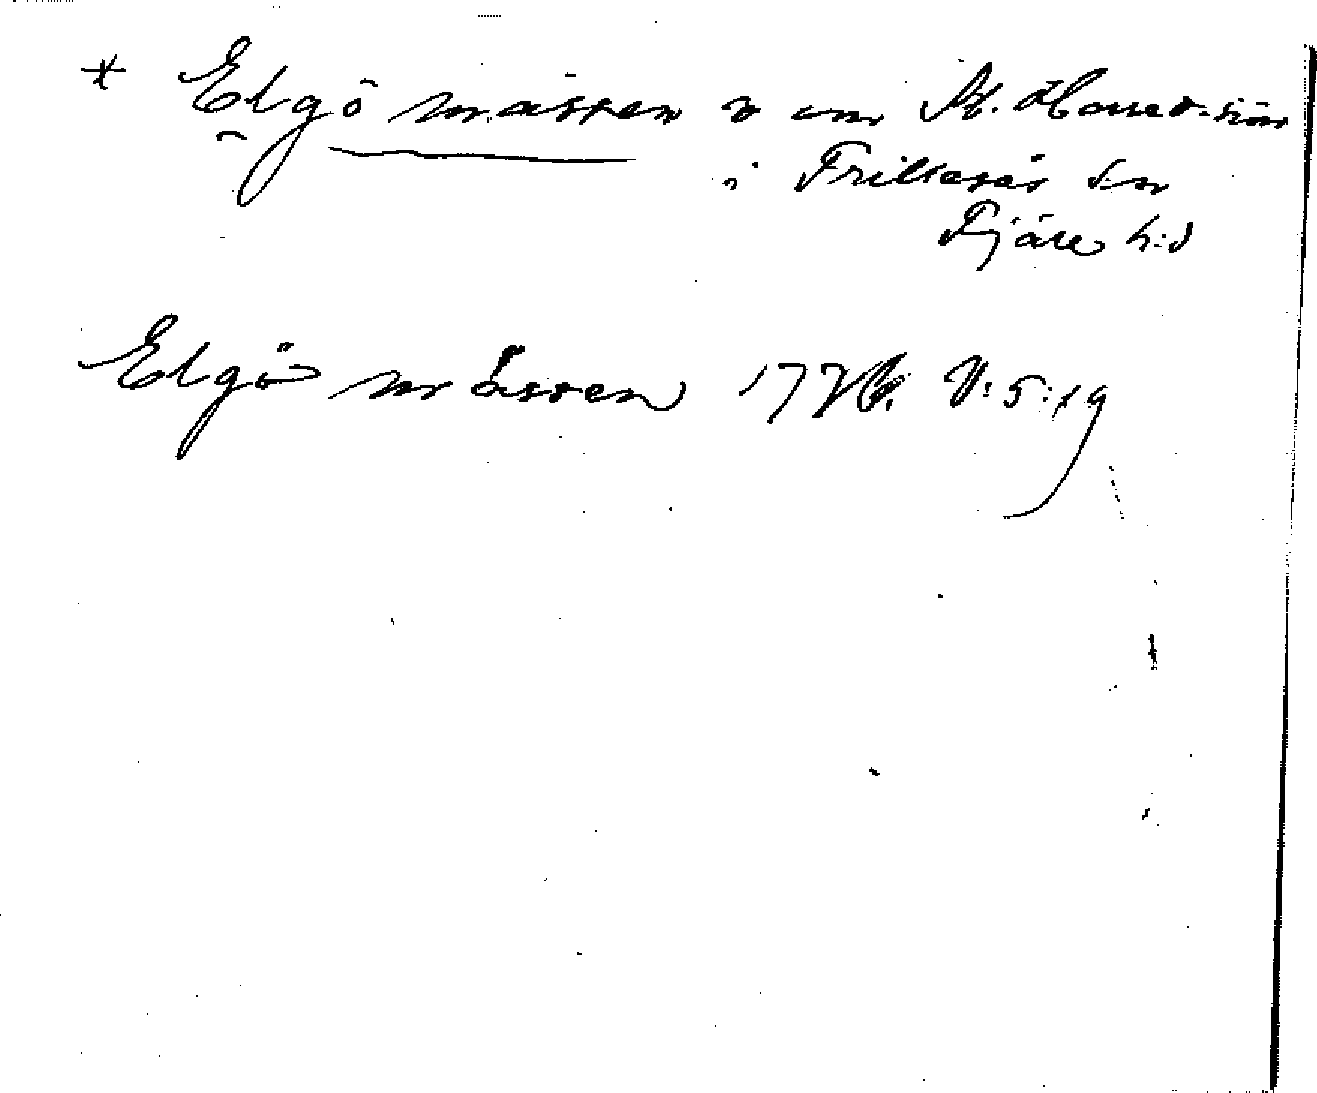 * Elgö måssen v om St. Hornsjön
i Frillesås sn
Fjäre h:d
Elgö måssen 1776. V:5:19